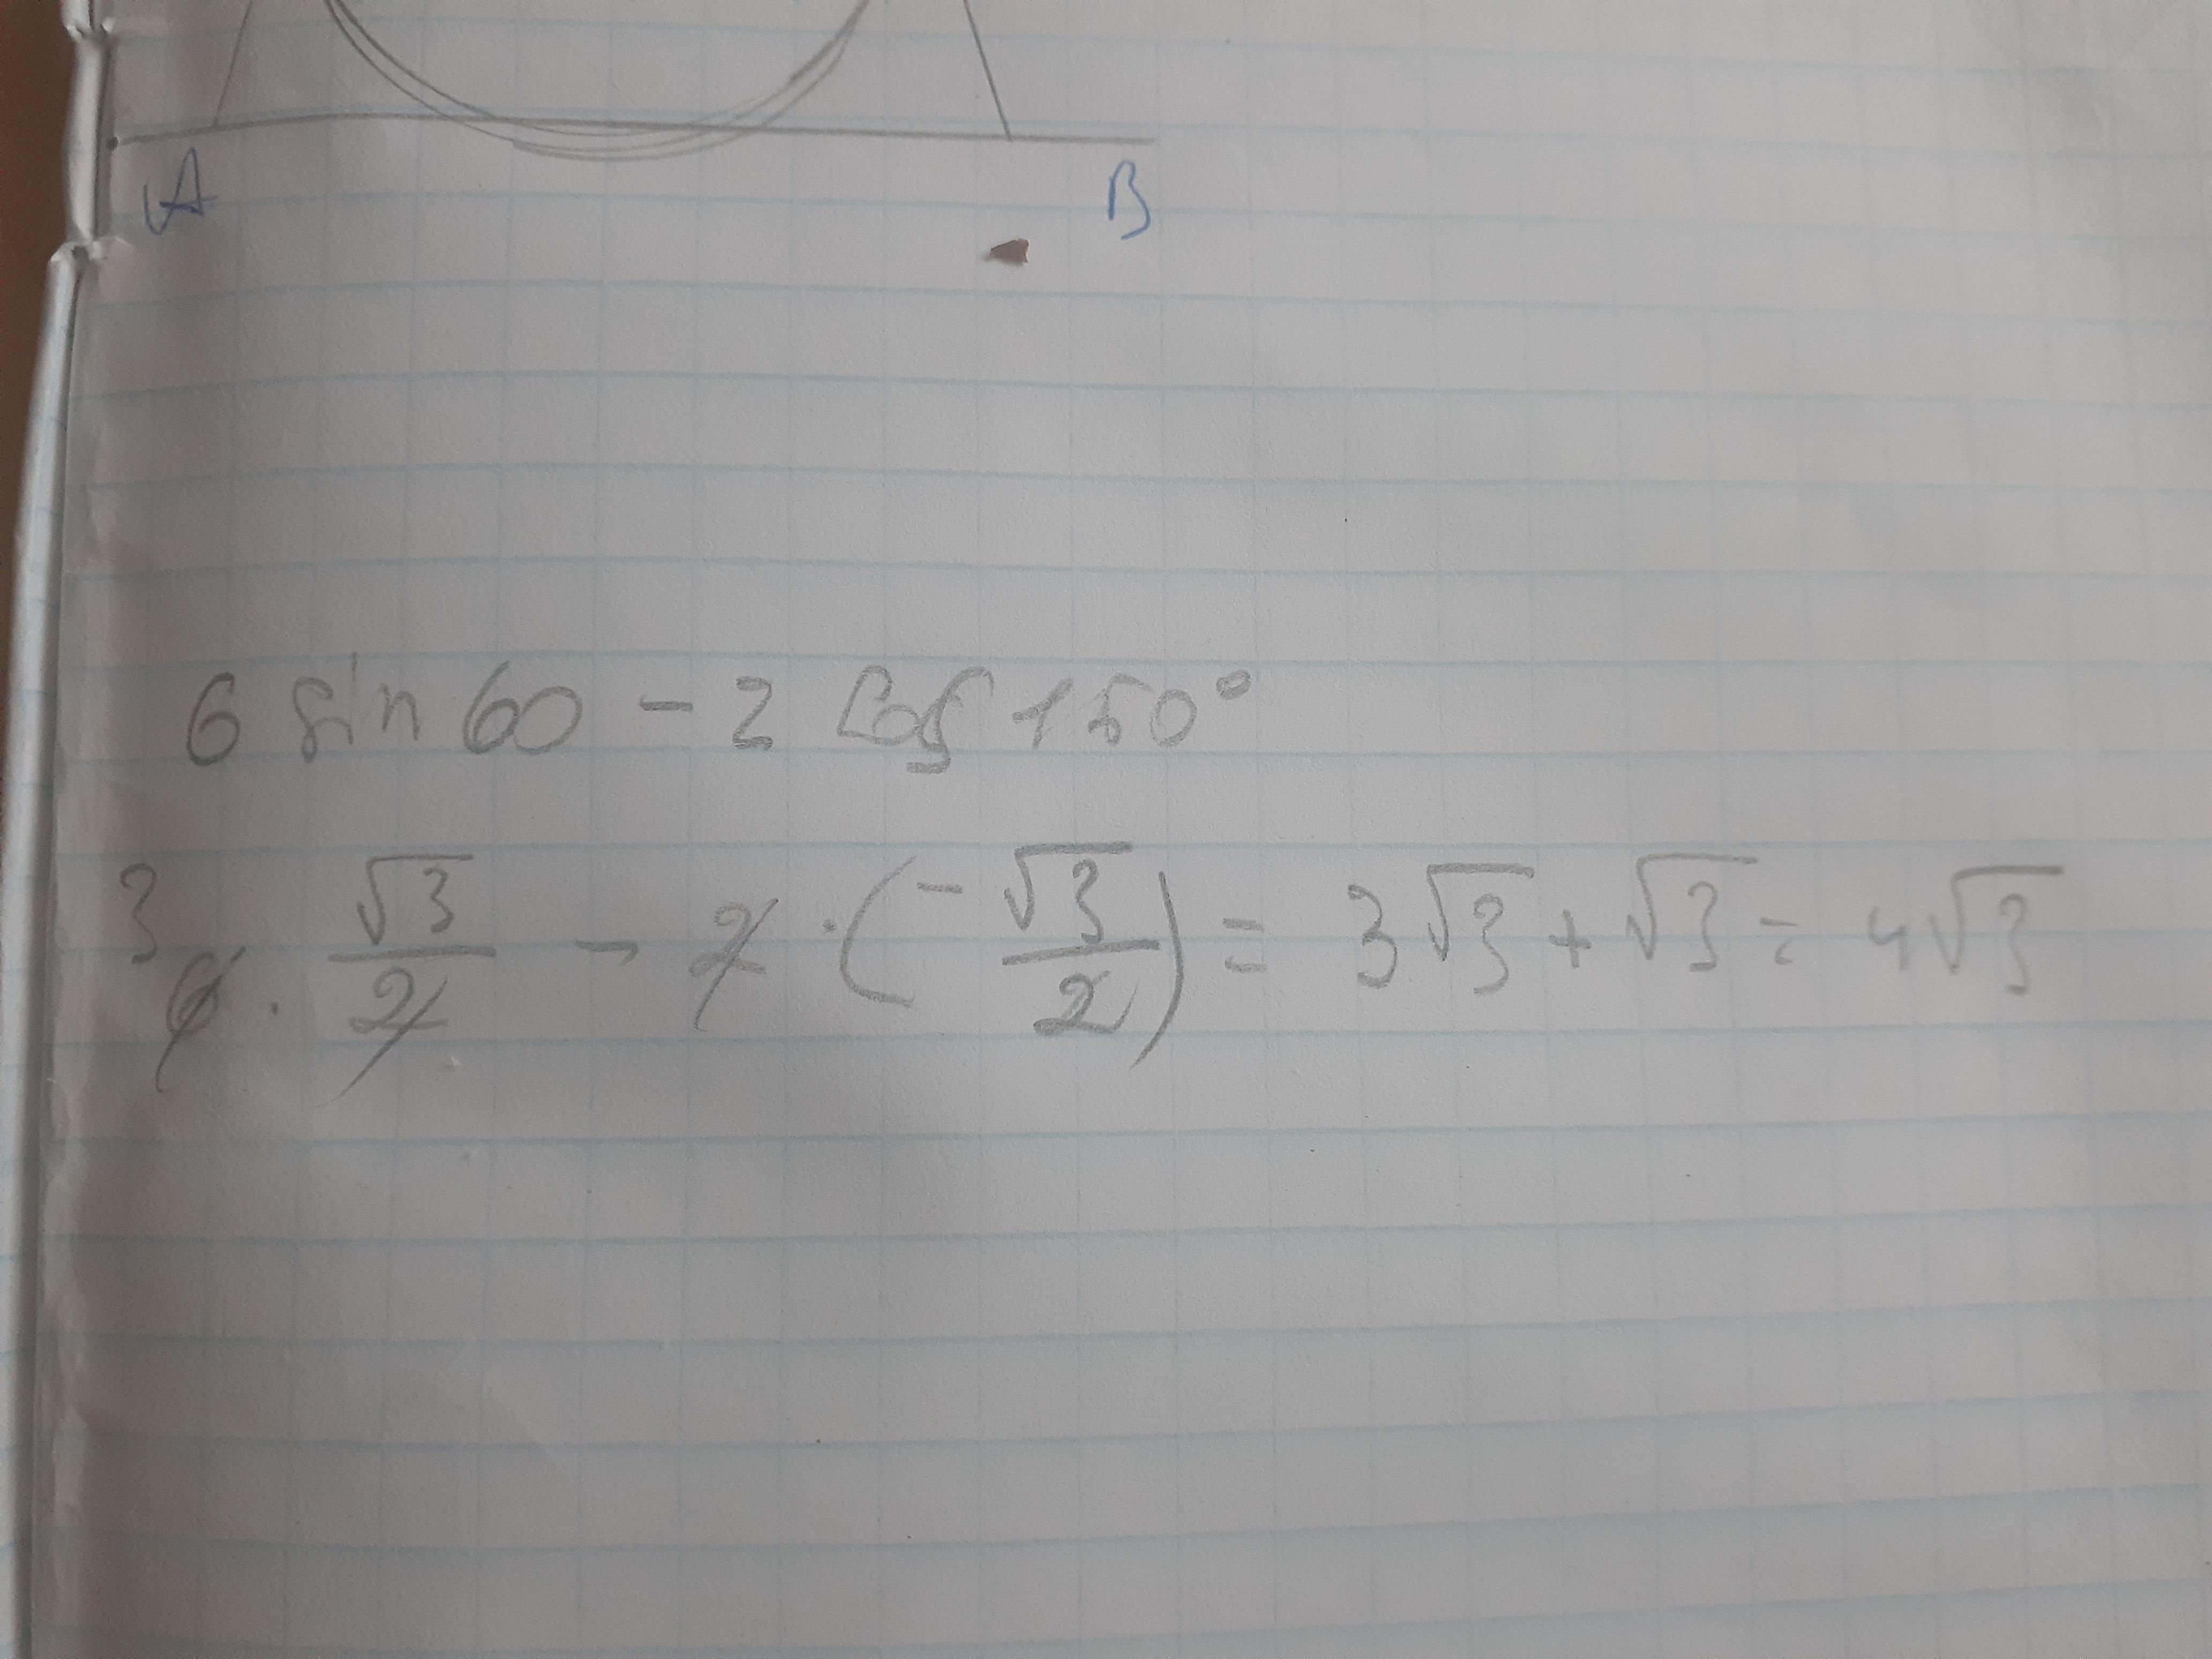 A B
6 sin 60 - 2 cos 150°
3
6 · √3/2 - 2 · (-√3/2) = 3√3 + √3 = 4√3